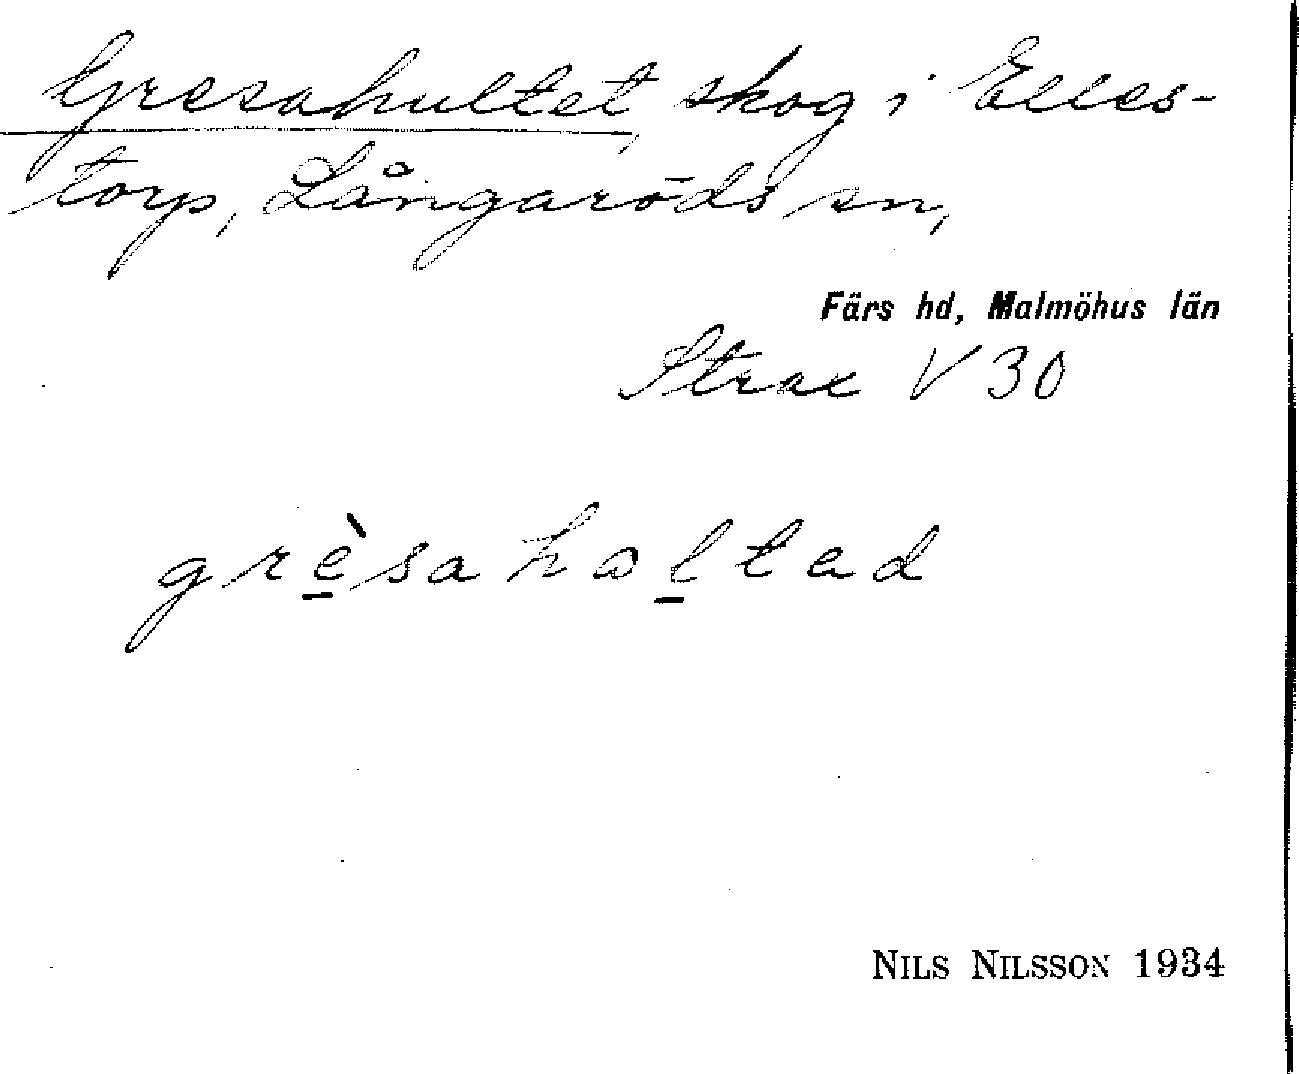 Gresahultet, skog i Elles-
torp, Långaröds sn,
Färs hd, Malmöhus län
Strax V 30
grè̠sahol̠tad
NILS NILSSON 1934